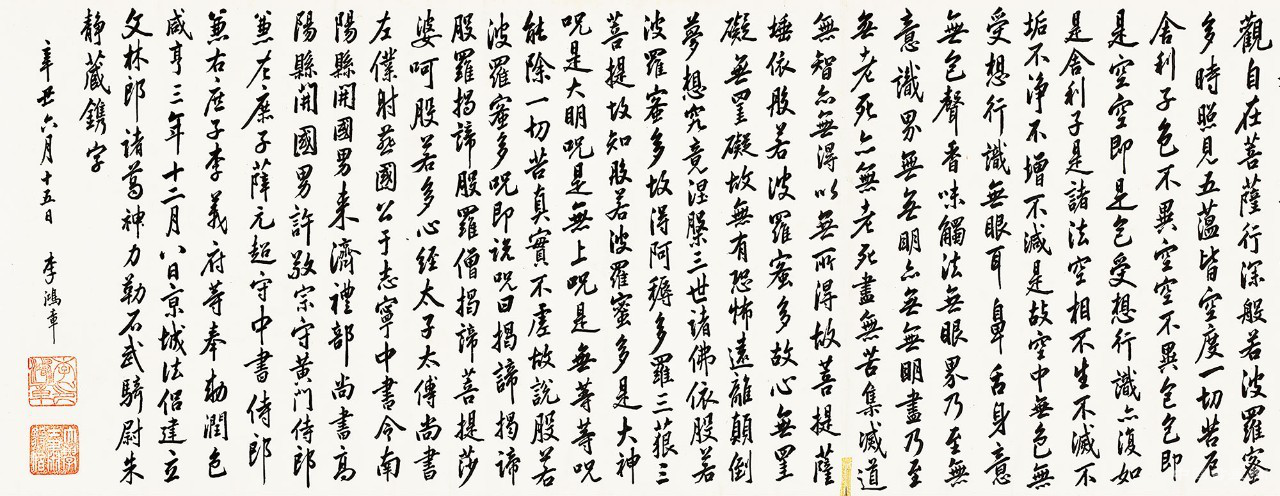 觀自在菩薩行深般若波羅蜜
多時照見五蕴皆空度一切苦厄
舍利子色不異空空不異色色即
是空空即是色受想行識亦復如
是舍利子是諸法空相不生不滅不
垢不淨不增不減是故空中無色無
受想行識無眼耳鼻舌身意
無色聲香味觸法無眼界乃至無
意識界無無明亦無無明盡乃至
無老死亦無老死盡無苦集滅道
無智亦無得以無所得故菩提薩
埵依般若波羅蜜多故心無罣
礙無罣礙故無有恐怖遠離顛倒
夢想究竟涅槃三世諸佛依般若
波羅蜜多故得阿耨多羅三藐三
菩提故知般若波羅蜜多是大神
咒是大明咒是無上咒是無等等咒
能除一切苦真實不虛故說般若
波羅蜜多咒即說咒曰揭諦揭諦
般羅揭諦般羅僧揭諦菩提莎
婆呵般若多心經太子太傅尚書
左僕射燕國公于志寧中書令南
陽縣開國男来濟禮部尚書高
陽縣開國男許敬宗守黄門侍郎
兼左庶子薛元超守中書侍郎
兼右庶子李義府等奉勅潤色
咸亨三年十二月八日京城法侣建立
文林郎諸葛神力勒石武騎尉朱
静藏鐫字
辛丑六月十五日 李鴻章